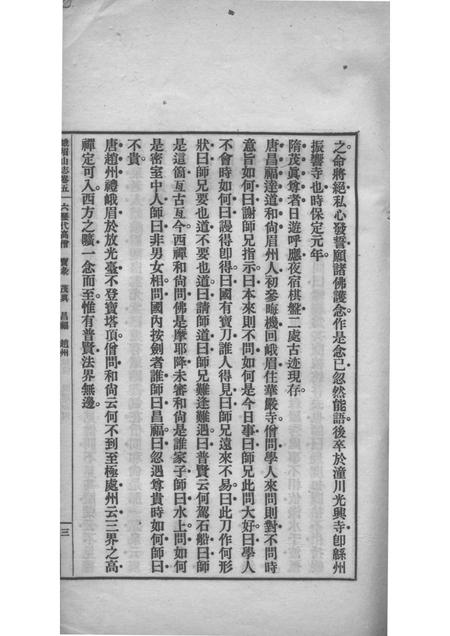 之命將絕私心發誓願諸佛護念作是念已忽然能語後卒於潼川光興寺卽緜州
振響寺也時保定元年
隋茂眞尊者日遊呼應夜宿棋盤二處古迹現存
唐昌福達道和尙眉州人初參晦機回峨眉住華嚴寺僧問學人來問則對不問時
意旨如何曰謝師兄指示曰本來則不問如何是今日事曰師兄此問大好曰學人
不會時如何曰謾得卽得曰國有寶刀誰人得見曰師兄遠來不易曰此刀作何形
狀曰師兄要也道不要也道曰請師道曰師兄難逢難遇曰普賢云何駕石船曰師
是這箇亙古亙今西禪和尙問佛是摩耶降未審和尙是誰家子師曰水上問如何
是密室中人師曰非男女相問國內按劍者誰師曰昌福曰忽遇尊貴時如何師曰
不貴
唐趙州禮峨眉於放光臺不登寶塔頂僧問和尙云何不到至極處州云三界之高
禪定可入西方之曠一念而至惟有普賢法界無邊
峨眉山志卷五 六歷代高僧 寶彖 茂眞 昌福 趙州
三